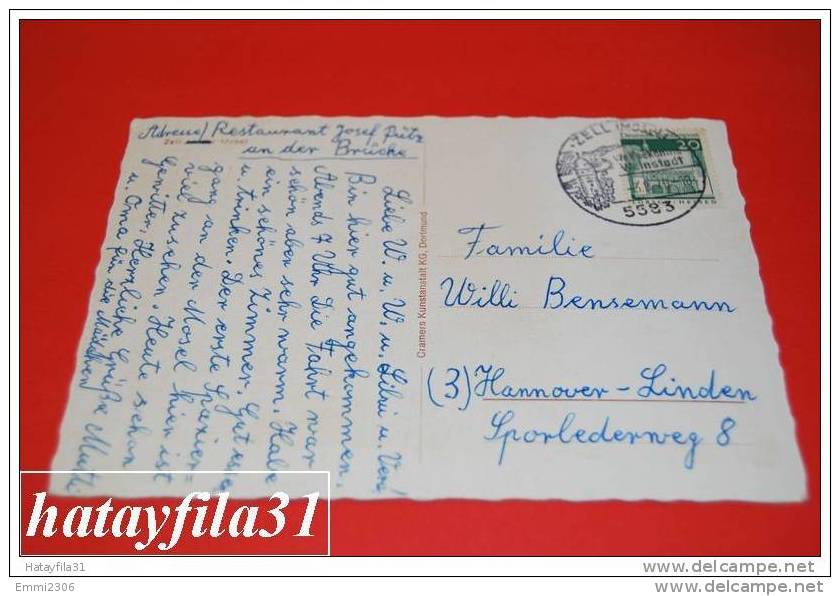 Adresse/ Restaurant Josef Pütz
an der Brücke
Liebe W. u. W. u. Silvi u. Vera!
Bin hier gut angekommen,
Abends 7 Uhr. Die Fahrt war
schön aber sehr warm. Habe
ein schönes Zimmer. Gut essen
u. trinken. Der erste Spazier=
gang an der Mosel hier ist
viel zu sehen. Heute schon
Gewitter. Herzliche Grüße Mutti
u. Oma für die Mädchen
Cramers Kunstanstalt KG, Dortmund
ZELL (MOSEL)
20
5583
Familie
Willi Bensemann
(3) Hannover-Linden
Sporlederweg 8
hatayfila31
Hatayfila31
www.delcampe.net
Emmi2306
www.delcampe.net